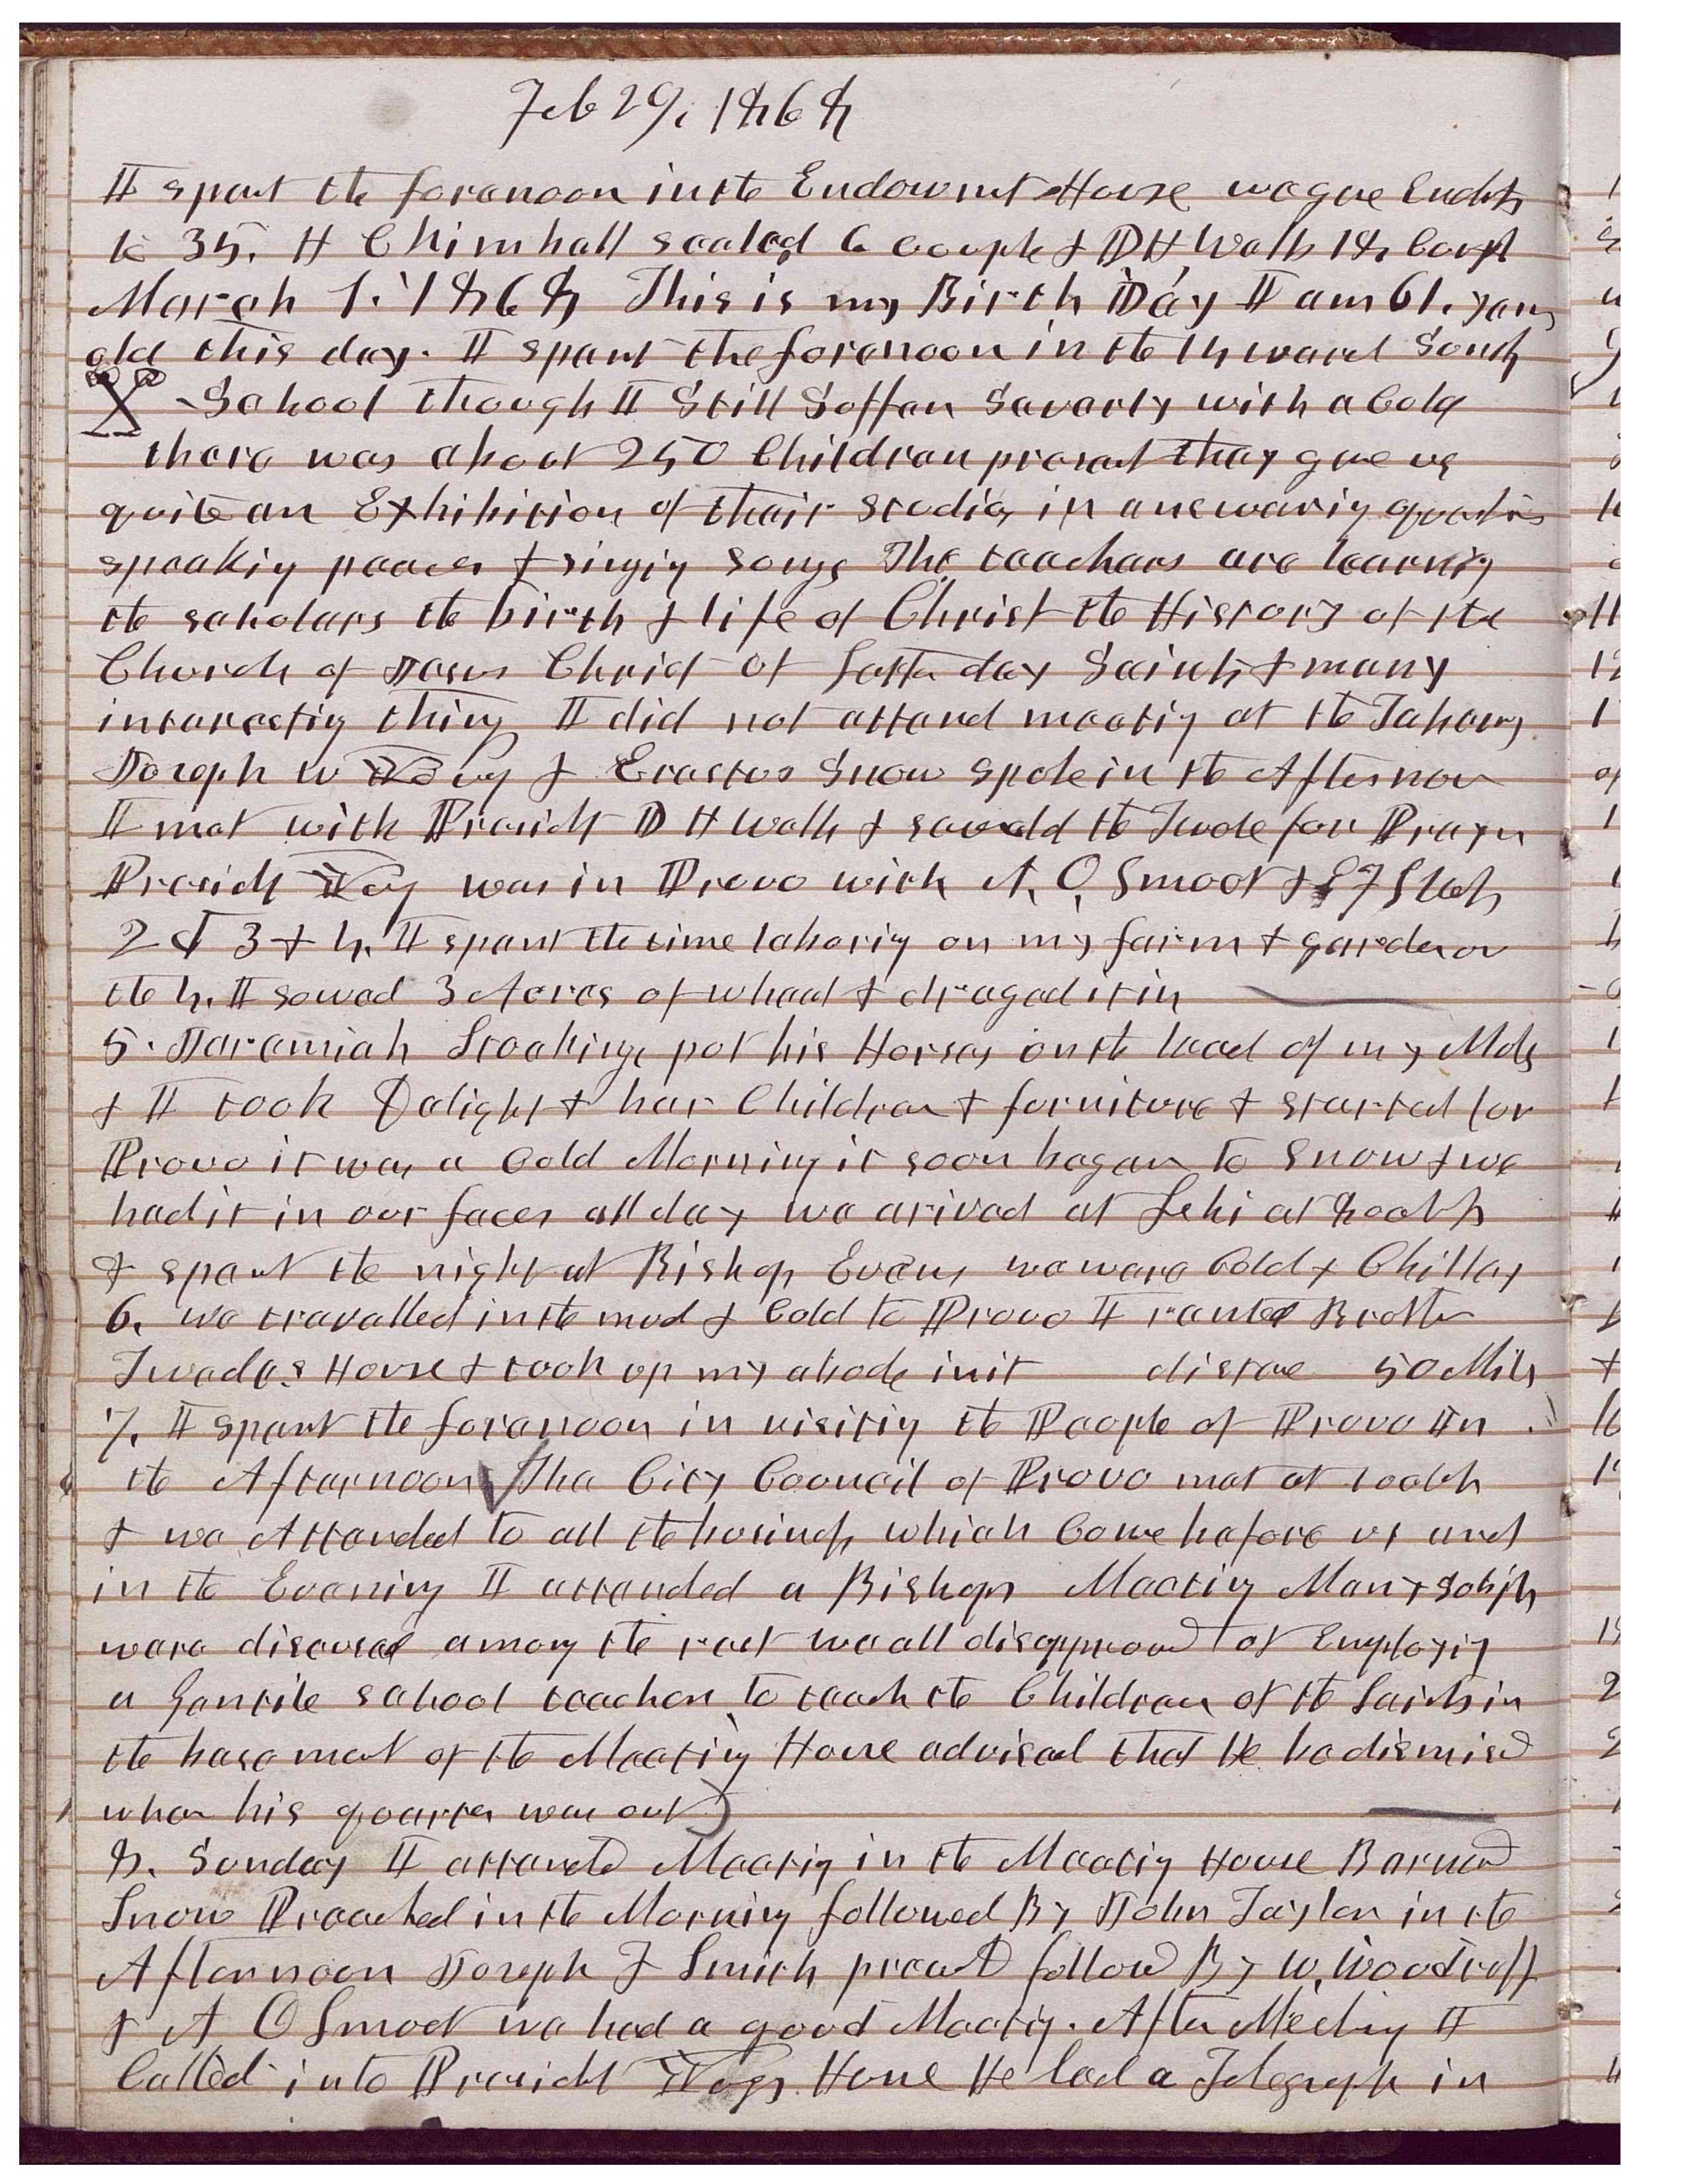 Feb 29, 1868
I spent the forenoon in the Endowmt House we gave Endts
to 35. H C Kimball sealed 6 couple & D H Wells 18 Coupl
March 1. 1868 This is my Birth Day I am 61. years
old this day. I spent the forenoon in the 14 ward Sondy
School though I Still Suffer Severely with a Cold
there was about 250 Children present they gave us
quite an Exhibition of their studies in answering questions
speaking peaces & singing songs The teachers are learning
the scholars the birth & life of Christ the History of the
Church of Jesus Christ of Latter day Saints & many
interesting things I did not attend meeting at the Tabercl
Joseph W Young & Erastus Snow spoke in the Afternoon
I met with Presidt D H Wells & several of the Twelve for Prayer
Presidt Young was in Provo with A. O. Smoot &
2d 3 & 4. I spent the time laboring on my farm & garden on
the 4. I sowed 3 Acres of wheat & draged it in
5. Jeremiah put his Horses on the lead of my Mules
& I took Delight & her Children & furniture & started for
Provo it was a Cold Morning it soon began to Snow & we
had it in our faces all day we arived at Lehi at 8 oclok
& spent the night at Bishop Evans we were Cold & Chilley
6. we travelled in the mud & Cold to Provo I rented Brother
House & took up my abode in it distance 50 Miles
7. I spent the forenoon in visiting the People of Provo In
the Afternoon The City Council of Provo met at 1 oclok
& we Attended to all the business which Come before us and
in the Evening I attended a Bishops Meeting Many subjets
were discused among the rest we all disapproved of Employing
a Gentile school teacher to teach the Children of the Saints in
the basement of the Meeting House advised that He be dismised
when his quarter was out
8. Sunday I attended Meeting in the Meeting House Barnard
Snow Preached in the Morning followed By John Taylor in the
Afternoon Joseph F Smith preachd followd By W. Woodruff
& A O Smoot we had a good Meeting. After Meeting I
Called into Presidt Youngs House He had a Telegraph in